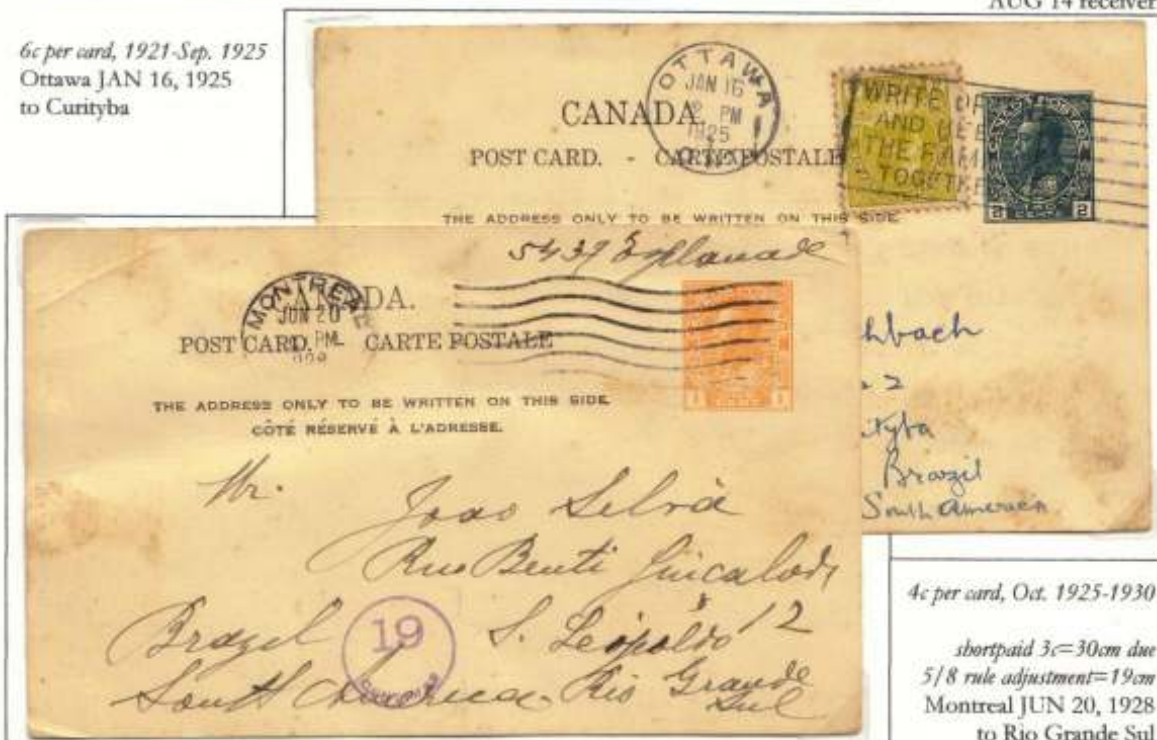 AUG 14 receiver
6c per card, 1921-Sep. 1925
Ottawa JAN 16, 1925
to Curityba
OTTAWA
JAN 16
2 PM
1925
CANADA.
POST CARD. - CARTE POSTALE
WRITE
AND
THE
TOGETHER
2 2
THE ADDRESS ONLY TO BE WRITTEN ON THIS SIDE
hbach
2
ityba
Brazil
South America
5437 Esplanade
MONTREAL
JUN 20
PM
CANADA.
POST CARD. CARTE POSTALE
1 1
THE ADDRESS ONLY TO BE WRITTEN ON THIS SIDE
CÔTÉ RÉSERVÉ À L'ADRESSE.
Mr.
Joao Silva
Rua Benti
S. Leopoldo 12
Brazil
South America. Rio Grande
Sul
19
4c per card, Oct. 1925-1930
shortpaid 3c=30cm due
5/8 rule adjustment=19cm
Montreal JUN 20, 1928
to Rio Grande Sul